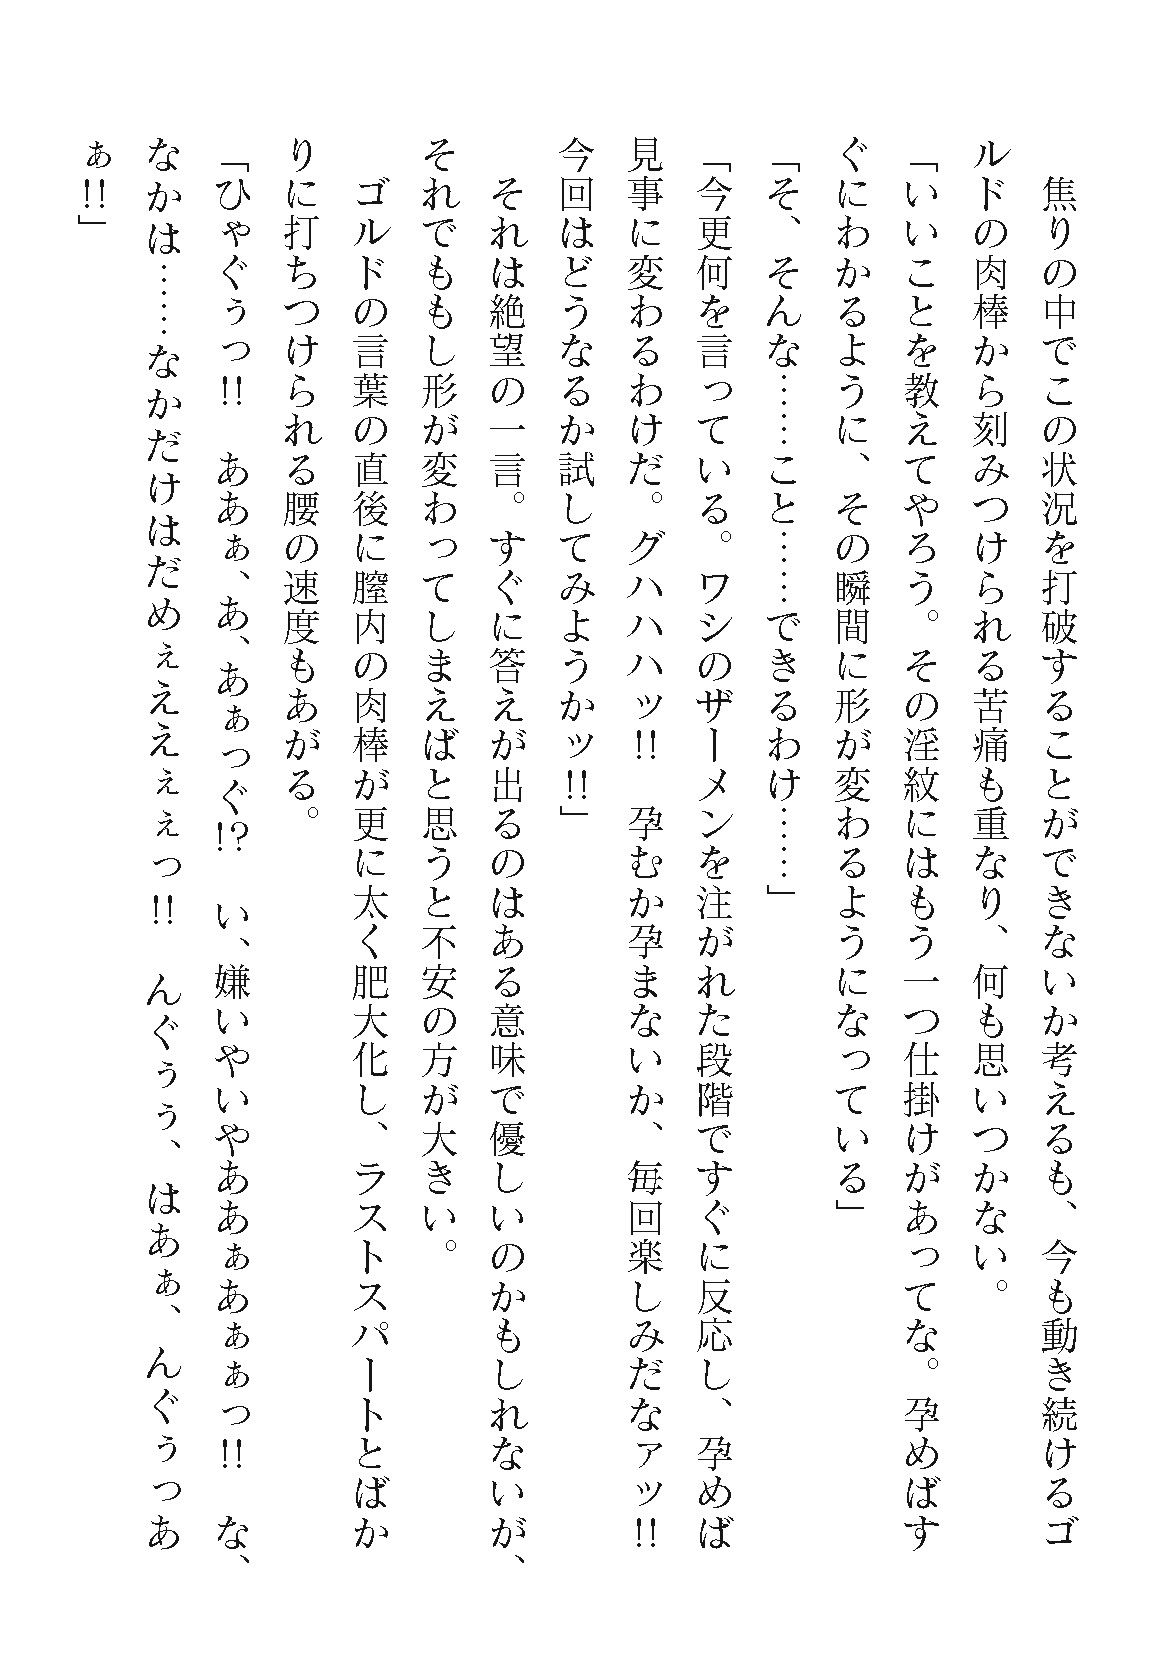 焦りの中でこの状況を打破することができないか考えるも、今も動き続けるゴ
ルドの肉棒から刻みつけられる苦痛も重なり、何も思いつかない。
「いいことを教えてやろう。その淫紋にはもう一つ仕掛けがあってな。孕めばす
ぐにわかるように、その瞬間に形が変わるようになっている」
「そ、そんな……こと……できるわけ……」
「今更何を言っている。ワシのザーメンを注がれた段階ですぐに反応し、孕めば
見事に変わるわけだ。グハハハッ!!　孕むか孕まないか、毎回楽しみだなァッ!!
今回はどうなるか試してみようかッ!!」
　それは絶望の一言。すぐに答えが出るのはある意味で優しいのかもしれないが、
それでももし形が変わってしまえばと思うと不安の方が大きい。
　ゴルドの言葉の直後に膣内の肉棒が更に太く肥大化し、ラストスパートとばか
りに打ちつけられる腰の速度もあがる。
「ひゃぐぅっ!!　ああぁ、あ、あぁっぐ!?　い、嫌いやいやああぁあぁぁっ!!　な、
なかは……なかだけはだめぇええぇぇっ!!　んぐぅぅ、はあぁ、んぐぅっあ
ぁ!!」